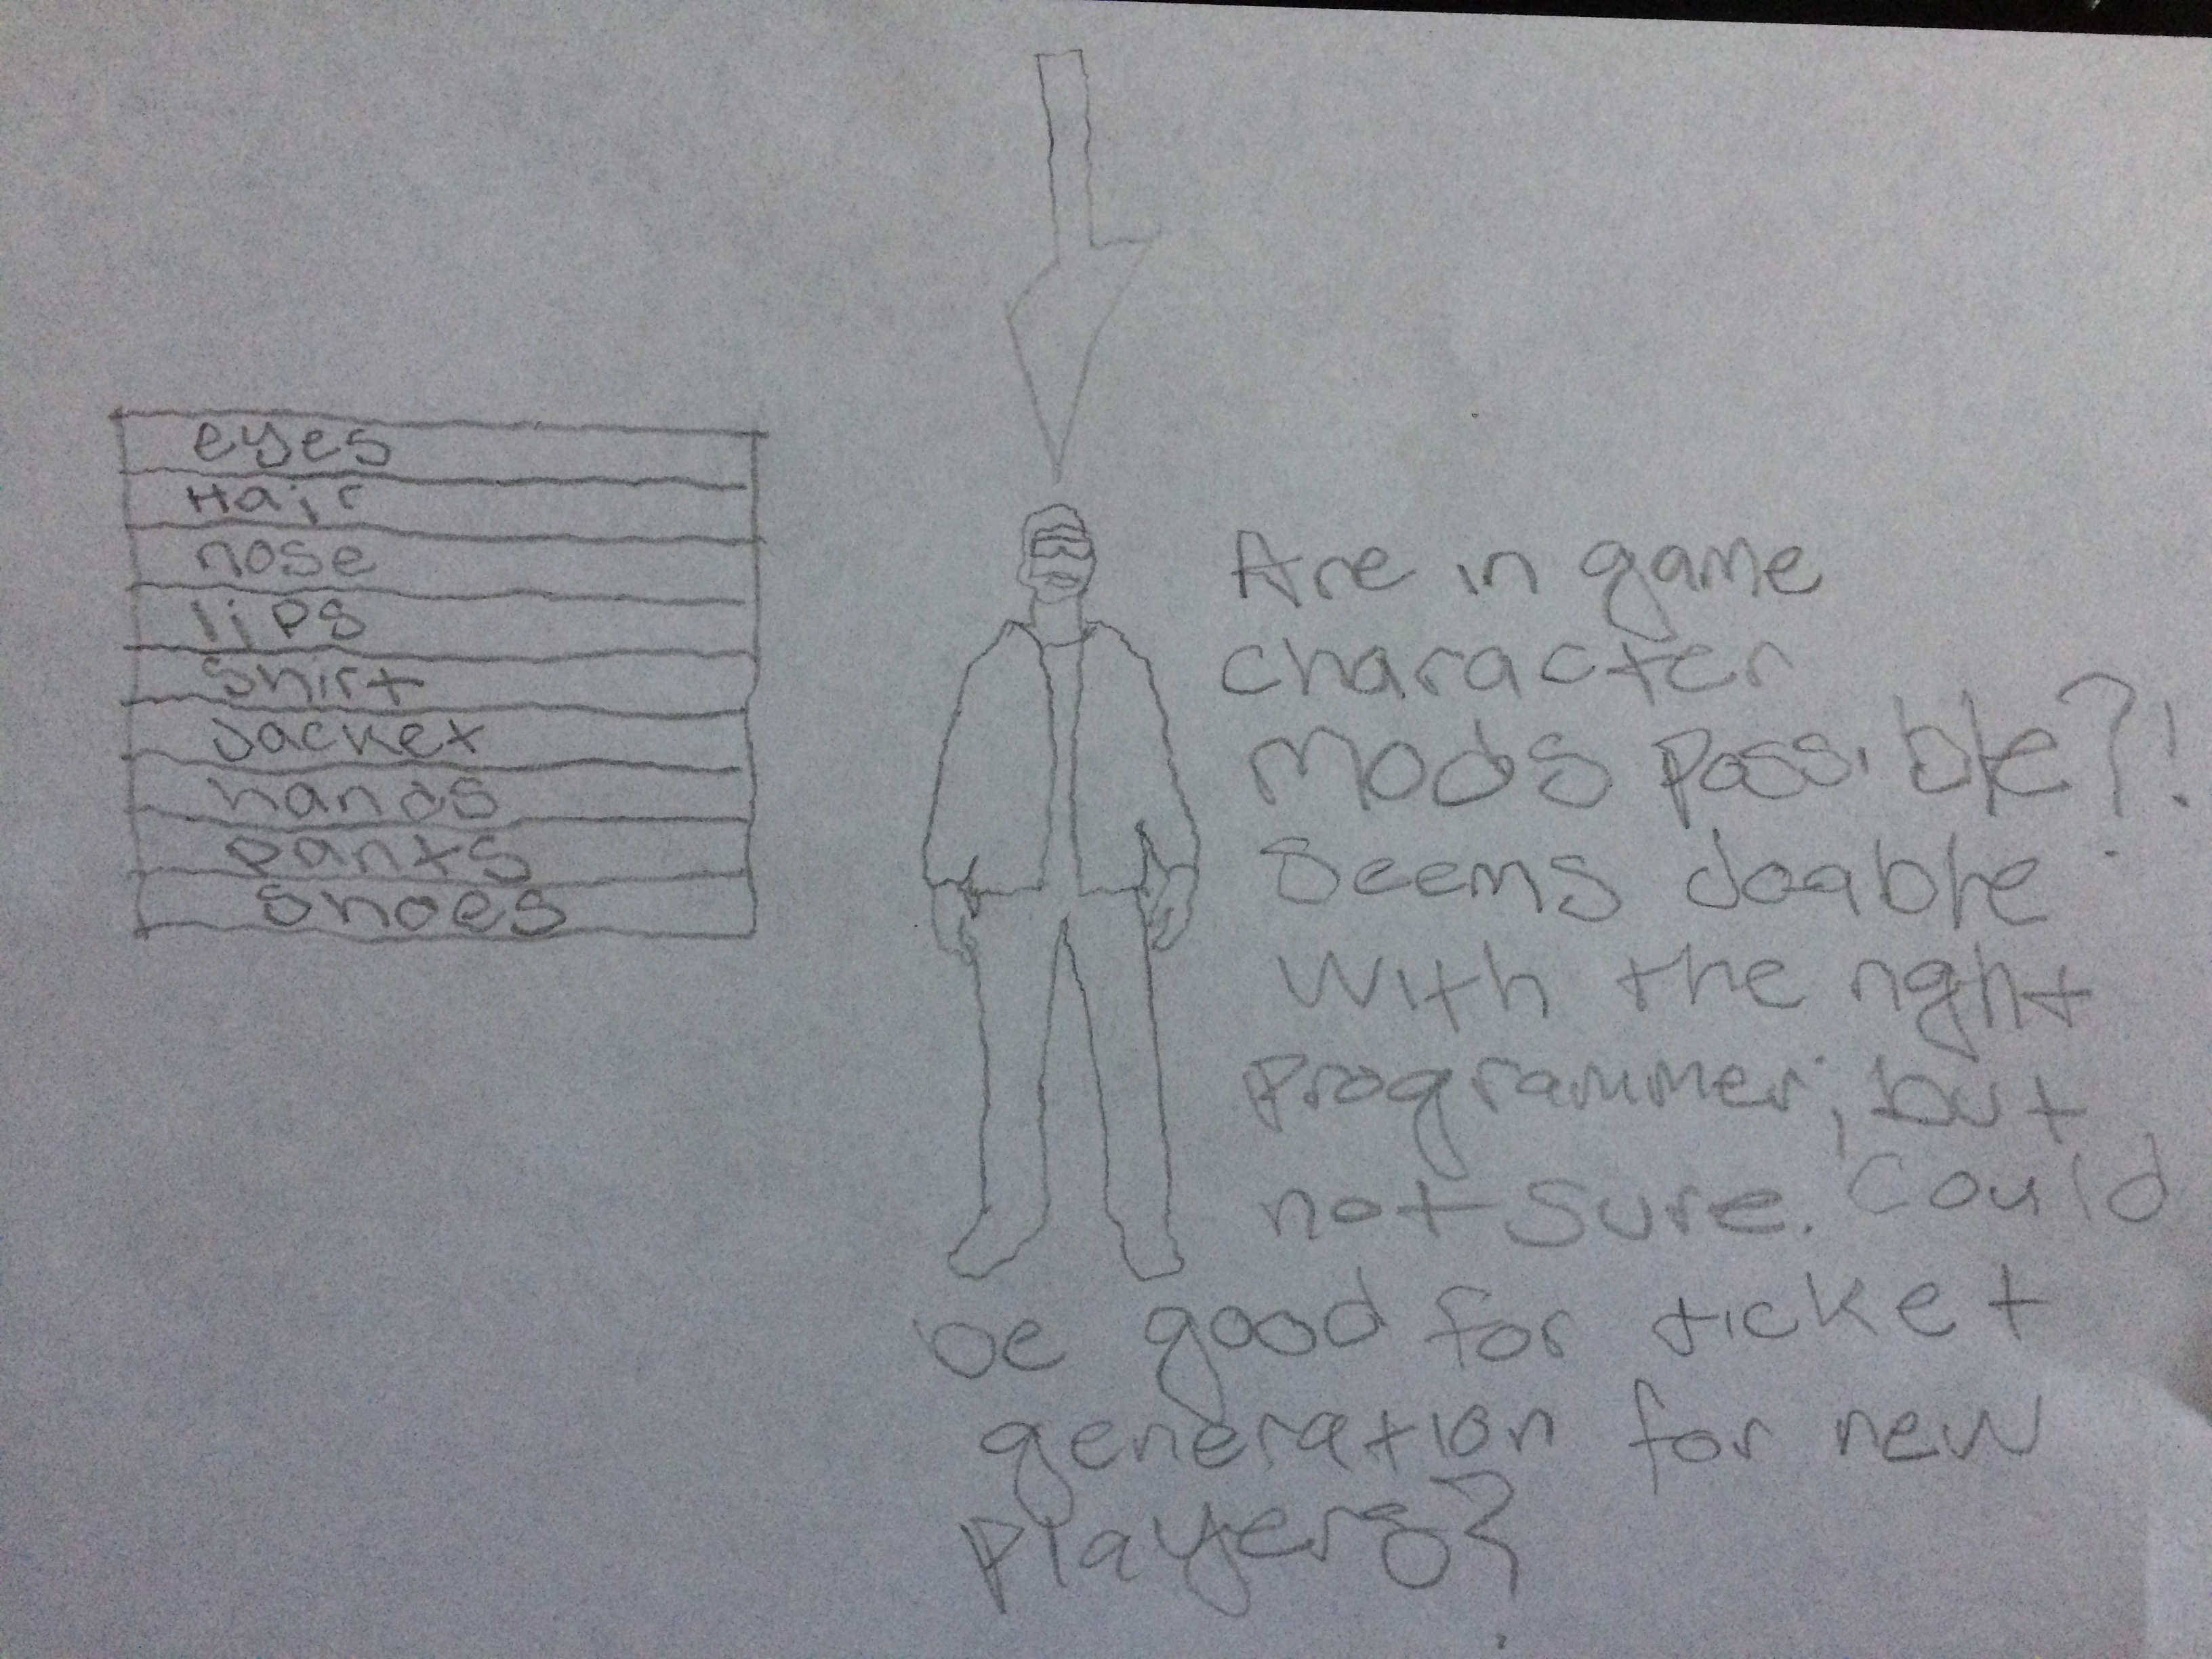 eyes
Hair
nose
lips
Shirt
Jacket
hands
pants
Shoes
Are in game
character
Mods possible?!
Seems doable
with the right
programmer, but
not sure. Could
be good for ticket
generation for new
players?